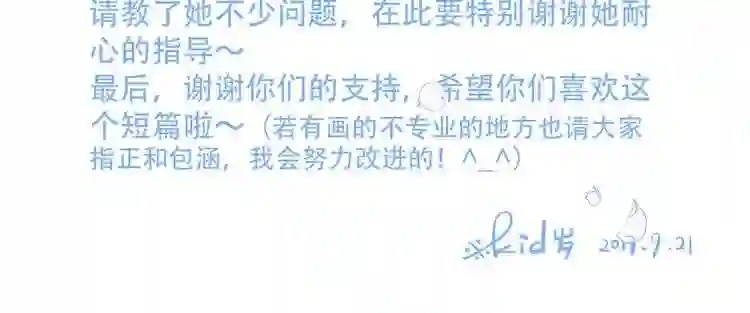 请教了她不少问题，在此要特别谢谢她耐
心的指导～
最后，谢谢你们的支持，希望你们喜欢这
个短篇啦～（若有画的不专业的地方也请大家
指正和包涵，我会努力改进的！^_^）
※kid岁 2017.9.21